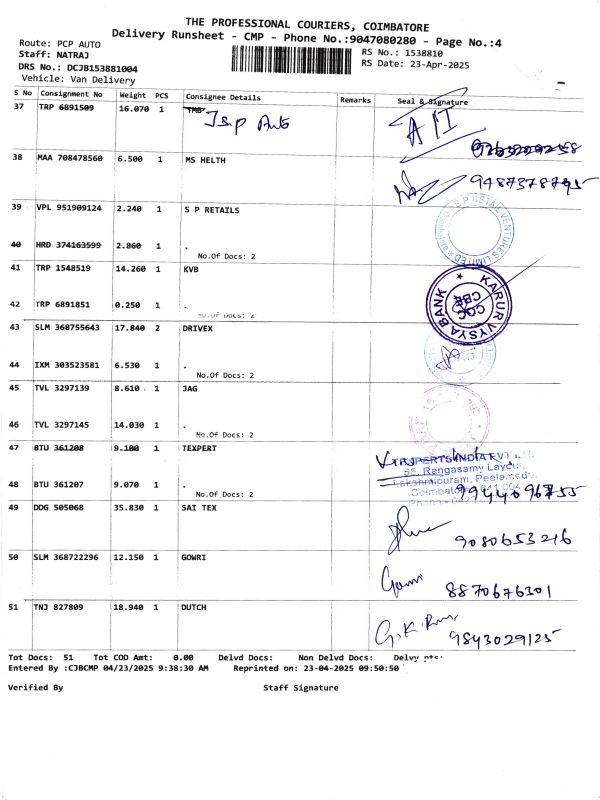 THE PROFESSIONAL COURIERS, COIMBATORE
Delivery Runsheet - CMP - Phone No.:9047080280 - Page No.:4
Route: PCP AUTO
Staff: NATRAJ
DRS No.: DCJB153881004
Vehicle: Van Delivery
RS No.: 1538810
RS Date: 23-Apr-2025
S No Consignment No Weight PCS Consignee Details Remarks Seal & Signature
37 TRP 6891509 16.070 1 TMB
J.S.P Auto
38 MAA 708478560 6.500 1 MS HELTH
39 VPL 951909124 2.240 1 S P RETAILS
40 HRD 374163599 2.860 1 .
No.Of Docs: 2
41 TRP 1548519 14.260 1 KVB
KARUR VYSYA BANK
42 TRP 6891851 0.250 1 .
No.Of Docs: 2
43 SLM 368755643 17.840 2 DRIVEX
44 IXM 303523581 6.530 1 .
No.Of Docs: 2
45 TVL 3297139 8.610 1 JAG
46 TVL 3297145 14.030 1 .
No.Of Docs: 2
47 BTU 361208 9.100 1 TEXPERT
Rangasamy Layout,
48 BTU 361207 9.070 1 .
No.Of Docs: 2
9944096755
49 DDG 505068 35.830 1 SAI TEX
9080653216
50 SLM 368722296 12.150 1 GOWRI
Gowri 8870676301
51 TNJ 827809 18.940 1 DUTCH
9843029125
Tot Docs: 51 Tot COD Amt: 0.00 Delvd Docs: Non Delvd Docs:
Entered By :CJBCMP 04/23/2025 9:38:30 AM Reprinted on: 23-04-2025 09:50:50
Verified By Staff Signature